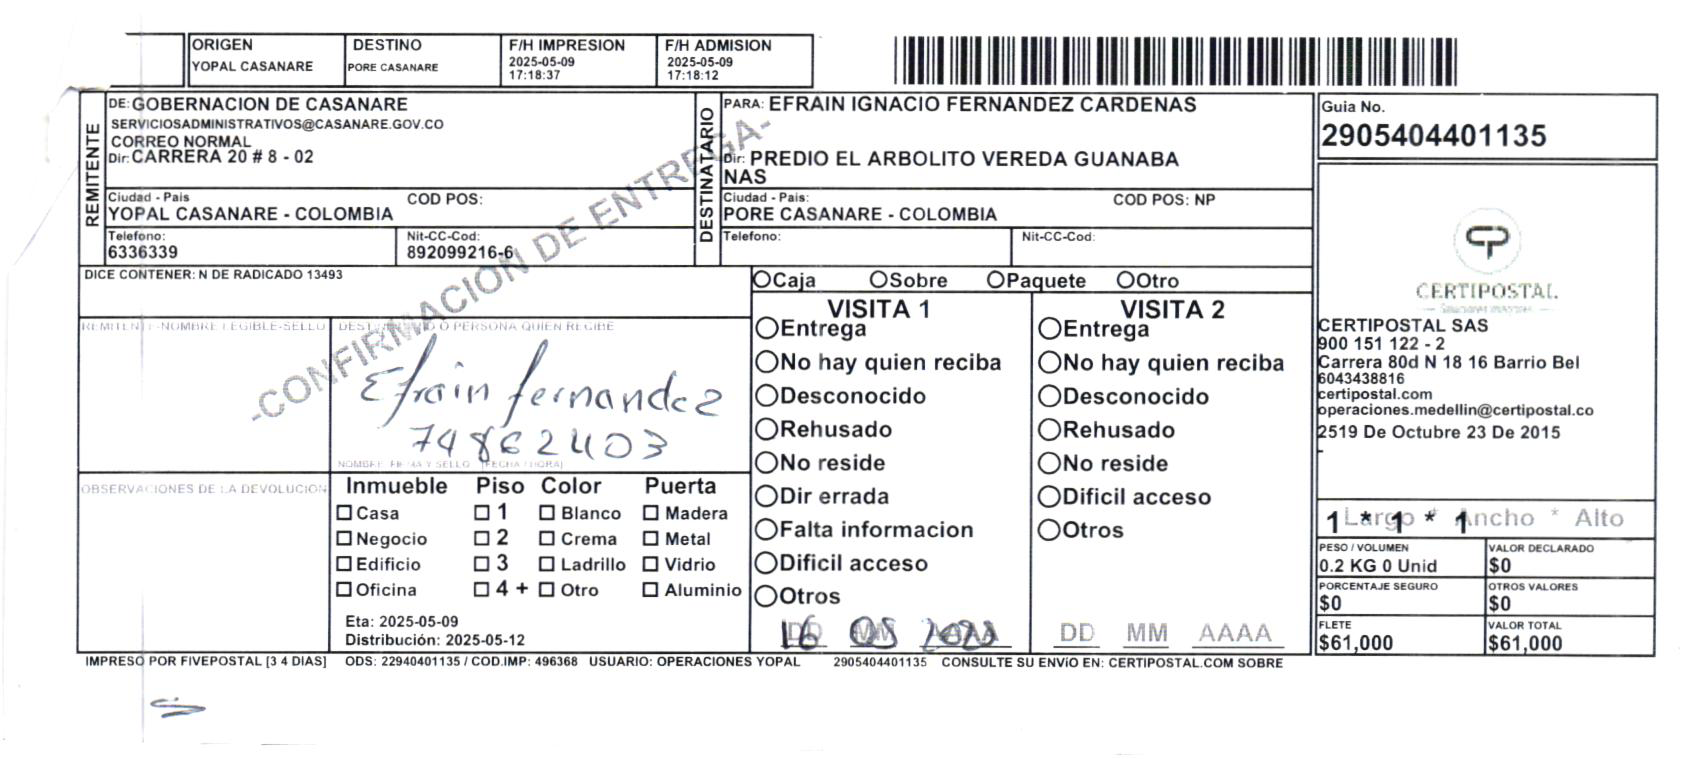 ORIGEN
YOPAL CASANARE
DESTINO
PORE CASANARE
F/H IMPRESION
2025-05-09
17:18:37
F/H ADMISION
2025-05-09
17:18:12
REMITENTE
DE: GOBERNACION DE CASANARE
SERVICIOSADMINISTRATIVOS@CASANARE.GOV.CO
CORREO NORMAL
Dir: CARRERA 20 # 8 - 02
Ciudad - Pais
COD POS:
YOPAL CASANARE - COLOMBIA
Telefono:
6336339
Nit-CC-Cod:
892099216-6
DESTINATARIO
PARA: EFRAIN IGNACIO FERNANDEZ CARDENAS
Dir: PREDIO EL ARBOLITO VEREDA GUANABA
NAS
Ciudad - Pais:
COD POS: NP
PORE CASANARE - COLOMBIA
Telefono:
Nit-CC-Cod:
Guia No.
2905404401135
-CONFIRMACION DE ENTREGA-
DICE CONTENER: N DE RADICADO 13493
REMITENTE-NOMBRE LEGIBLE-SELLO
DESTINATARIO O PERSONA QUIEN RECIBE
Efrain fernandez
74862403
NOMBRE FIRMA Y SELLO (FECHA Y HORA)
OBSERVACIONES DE LA DEVOLUCION
Inmueble Piso Color Puerta
Casa 1 Blanco Madera
Negocio 2 Crema Metal
Edificio 3 Ladrillo Vidrio
Oficina 4 + Otro Aluminio
Eta: 2025-05-09
Distribución: 2025-05-12
Caja Sobre Paquete Otro
VISITA 1
Entrega
No hay quien reciba
Desconocido
Rehusado
No reside
Dir errada
Falta informacion
Dificil acceso
Otros
DD MM AAAA
16 05
VISITA 2
Entrega
No hay quien reciba
Desconocido
Rehusado
No reside
Dificil acceso
Otros
DD MM AAAA
CERTIPOSTAL
CERTIPOSTAL SAS
900 151 122 - 2
Carrera 80d N 18 16 Barrio Bel
6043438816
certipostal.com
operaciones.medellin@certipostal.co
2519 De Octubre 23 De 2015
-
Largo * Ancho * Alto
1 * 1 * 1
PESO / VOLUMEN
0.2 KG 0 Unid
VALOR DECLARADO
$0
PORCENTAJE SEGURO
$0
OTROS VALORES
$0
FLETE
$61,000
VALOR TOTAL
$61,000
IMPRESO POR FIVEPOSTAL [3 4 DIAS] ODS: 22940401135 / COD.IMP: 496368 USUARIO: OPERACIONES YOPAL 2905404401135 CONSULTE SU ENVíO EN: CERTIPOSTAL.COM SOBRE